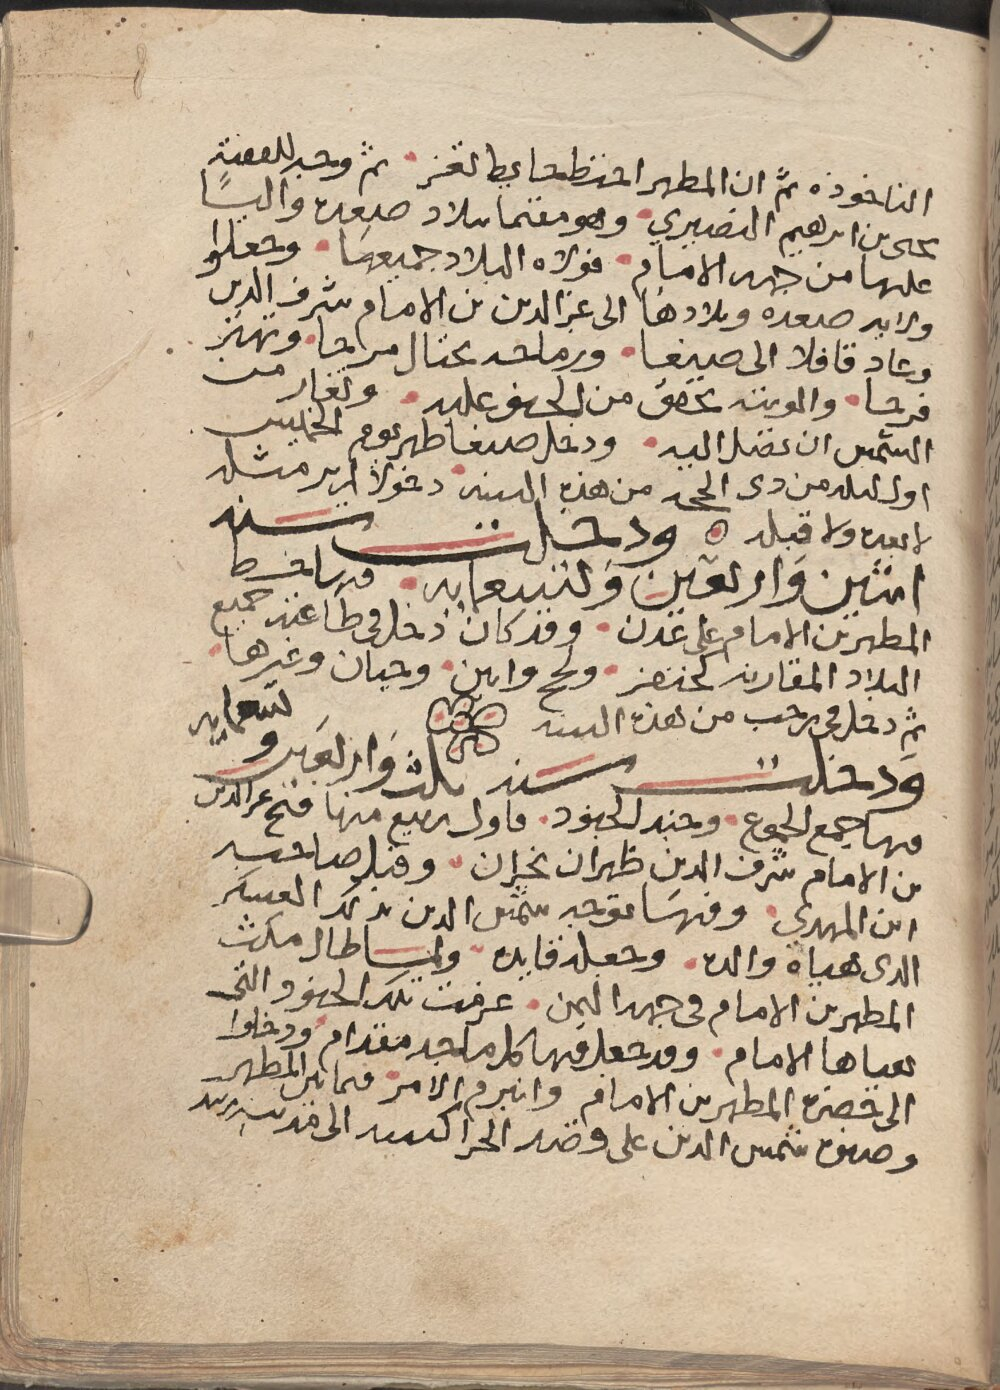 الناخوذه ثم ان المطهر احتط حايط تعز ثم وجه للفقيه
يحيى بن ابرهيم النصيري وهو مقيما ببلاد صعده واليا
عليها من جهه الامام فولاه البلاد جميعها وجعلوا
ولايه صعده وبلادها الى عز الدين بن الامام شرف الدين
وعاد قافلا الى صنعا ورماحه تختال مرحا وتهتز
فرحا والويته تخفق من الجو عليه وتغار من
الشمس ان تصل اليه ودخل صنعا ظهر يوم الخميس
اول ليله من ذى الحجه من هذه السنه دخولا لم ير مثله
لا بعده ولا قبله ودخلت سنه
اثنين واربعين وتسعمايه فيها خط
المطهر بن الامام على عدن وقد كان دخل في طاعته جميع
البلاد المقاربه كخنفر ولحج وابين وحبان وغيرها
ثم دخل في رجب من هذه السنه
ودخلت سنه ثلث واربعين وتسعمايه
فيها جمع الجموع وجند الجنود فاول ربيع منها فتح عز الدين
بن الامام شرف الدين ظهران نجران وقتل صاحبه
ابن المهدي وفيها توجه شمس الدين بذلك العسكر
الذى هياه والده وجعله قايده ولما طال مكث
المطهر بن الامام في جهه اليمن عرفت تلك الجنود التى
عباها الامام وقد جعل فيها كل ماجد مقدام ودخلوا
الى حضره المطهر بن الامام وانبرم الامر فيما بين المطهر
وصنوه شمس الدين على قصد الجراكسه الى مدينه زبيد